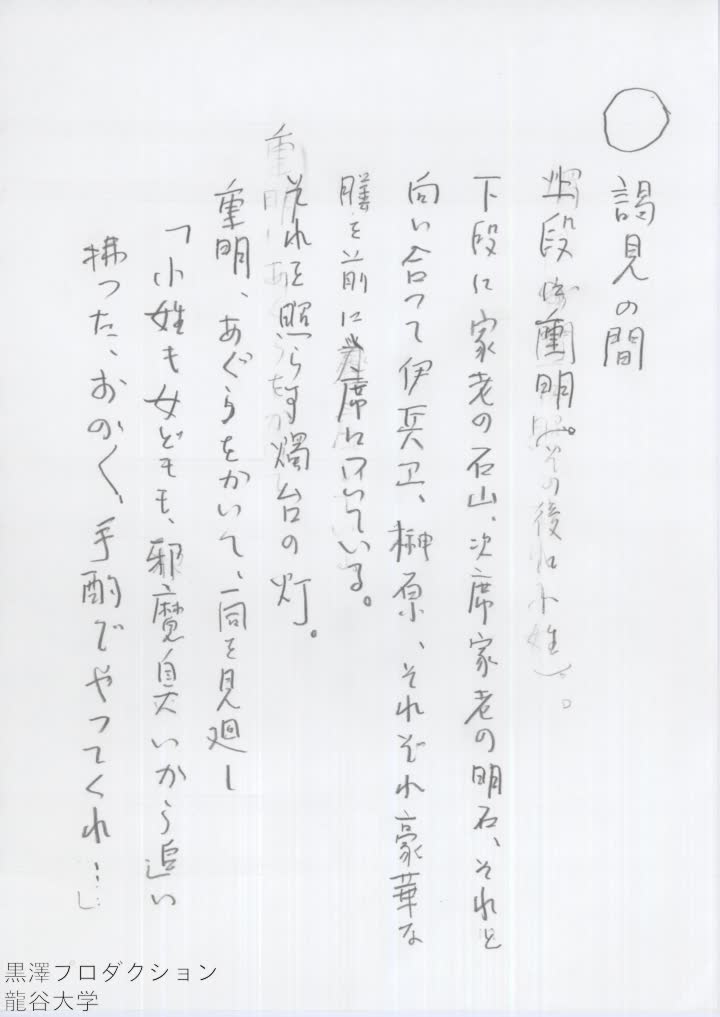 ○ 謁見の間
上段に重明。
下段に家老の石山、次席家老の明石、それと
向い合って伊兵衛、榊原、それぞれ豪華な
膳を前に、席についている。
それを照らす燭台の灯。
重明、あぐらをかいて、一同を見廻し
「小姓も女どもも、邪魔臭いから追い
拂った、おのく、手酌でやってくれ…」
黒澤プロダクション
龍谷大学